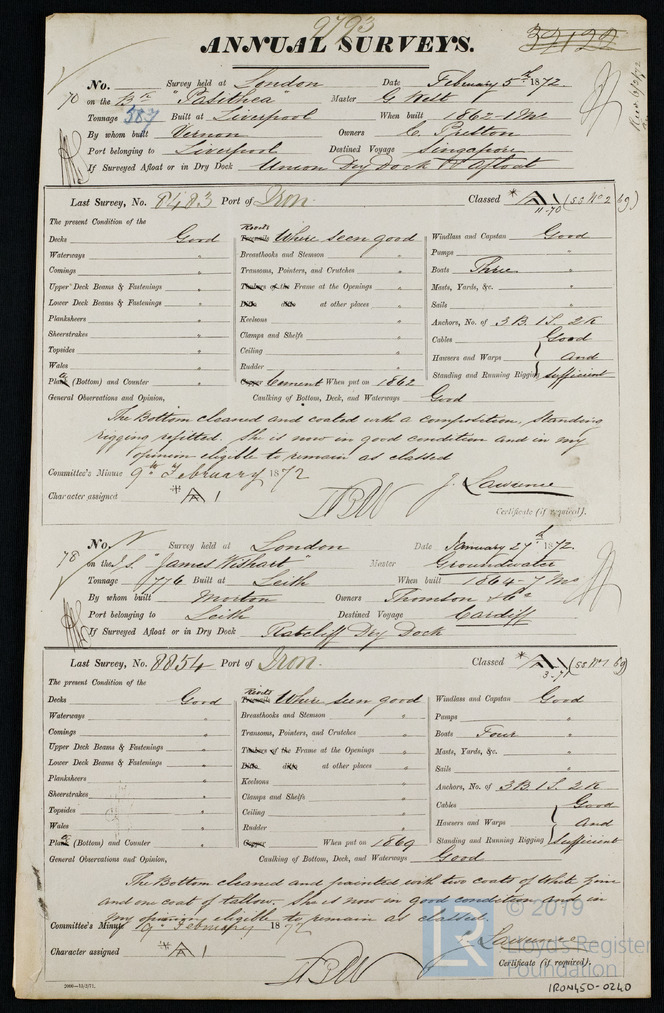 9793
ANNUAL SURVEYS.
32122
No. Survey held at London Date February 5th 1872.
70 on the Bk "Pasithea" Master G West
Tonnage 587 Built at Liverpool When built 1862-1 Mo
By whom built Vernon Owners C. Preston
Port belonging to Liverpool Destined Voyage Singapore
If Surveyed Afloat or in Dry Dock Union Dry Dock & Afloat
Last Survey, No. 8483 Port of Iron. Classed A 11-70 (SS No 2 69)
The present Condition of the Rivets
Decks Good Where seen good Windlass and Capstan Good
Waterways " Breasthooks and Stemson " Pumps "
Comings " Transoms, Pointers, and Crutches " Boats Three "
Upper Deck Beams & Fastenings " Timbers of the Frame at the Openings " Masts, Yards, &c. "
Lower Deck Beams & Fastenings " Ditto ditto at other places " Sails "
Planksheers " Keelsons " Anchors, No. of 3 B. 1 S. 2 K
Sheerstrakes " Clamps and Shelfs " Cables Good
Topsides " Ceiling " Hawsers and Warps And
Wales " Rudder " Standing and Running Rigging sufficient
Plank (Bottom) and Counter " Copper Cement When put on 1862
General Observations and Opinion, Caulking of Bottom, Deck, and Waterways Good
The Bottom cleaned and coated with a composition, Standing
rigging refitted. She is now in good condition and in my
opinion eligible to remain as classed
Committee's Minute 9th February 1872
J. Lawrence
Character assigned A 1
Certificate (if required).
No. Survey held at London Date January 27th 1872.
78 on the I.S. "James Wishart" Master Groundwater
Tonnage 776 Built at Leith When built 1864-7 Mo
By whom built Morton Owners Thomson & Co
Port belonging to Leith Destined Voyage Cardiff
If Surveyed Afloat or in Dry Dock Ratcliff Dry Dock
Last Survey, No. 8854 Port of Iron. Classed A 3-71 (SS No 1 69)
The present Condition of the Rivets
Decks Good Where seen good Windlass and Capstan Good
Waterways " Breasthooks and Stemson " Pumps "
Comings " Transoms, Pointers, and Crutches " Boats Four "
Upper Deck Beams & Fastenings " Timbers of the Frame at the Openings " Masts, Yards, &c. "
Lower Deck Beams & Fastenings " Ditto ditto at other places " Sails "
Planksheers " Keelsons " Anchors, No. of 3 B. 1 S. 2 K
Sheerstrakes " Clamps and Shelfs " Cables Good
Topsides " Ceiling " Hawsers and Warps And
Wales " Rudder " Standing and Running Rigging Sufficient
Plank (Bottom) and Counter " Copper When put on 1869
General Observations and Opinion, Caulking of Bottom, Deck, and Waterways Good
The Bottom cleaned and painted with two coats of White Zinc
and one coat of tallow. She is now in good condition and in
my opinion eligible to remain as classed.
Committee's Minute 9 February 1872
Lawrence
Character assigned A 1
Certificate (if required).
© 2019
LR Lloyd's Register
Foundation
IRON450-0240